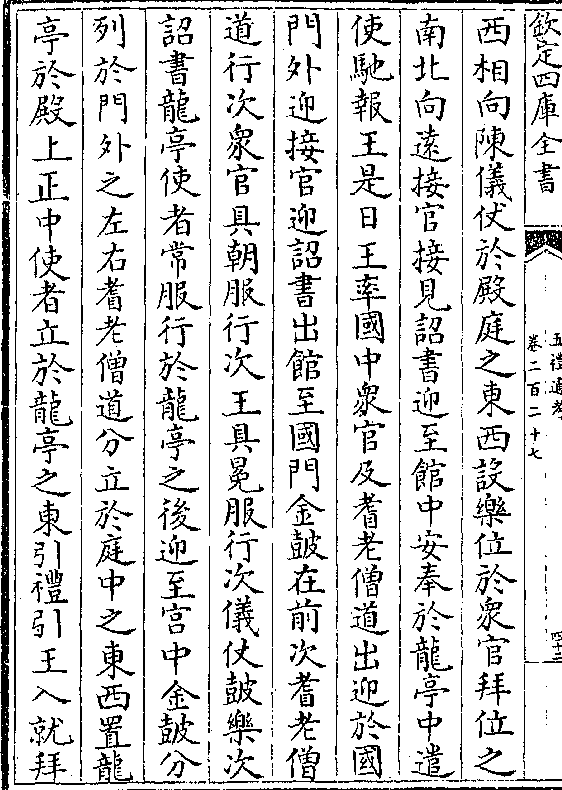 欽定四庫全書
五禮通考
卷二百二十七
四十三
西相向陳儀仗於殿庭之東西設樂位於衆官拜位之
南北向遠接官接見詔書迎至館中安奉於龍亭中遣
使馳報王是日王率國中衆官及耆老僧道出迎於國
門外迎接官迎詔書出館至國門金鼓在前次耆老僧
道行次衆官具朝服行次王具冕服行次儀仗鼓樂次
詔書龍亭使者常服行於龍亭之後迎至宫中金鼓分
列於門外之左右耆老僧道分立於庭中之東西置龍
亭於殿上正中使者立於龍亭之東引禮引王入就拜